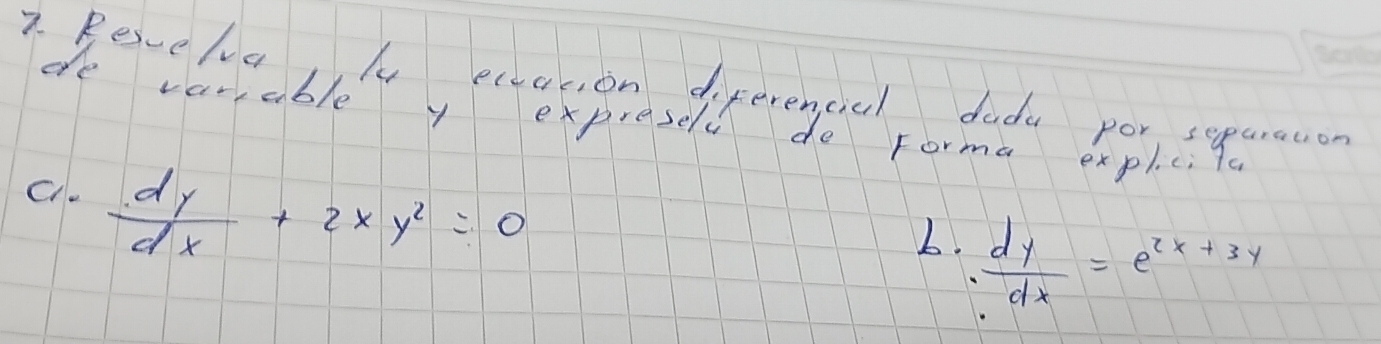 7. Resuelva la ecuación diferencial dada por separacion
de variable y expresela de Forma explicita
a. dy/dx + 2xy² = 0
b. dy/dx = e^{2x+3y}